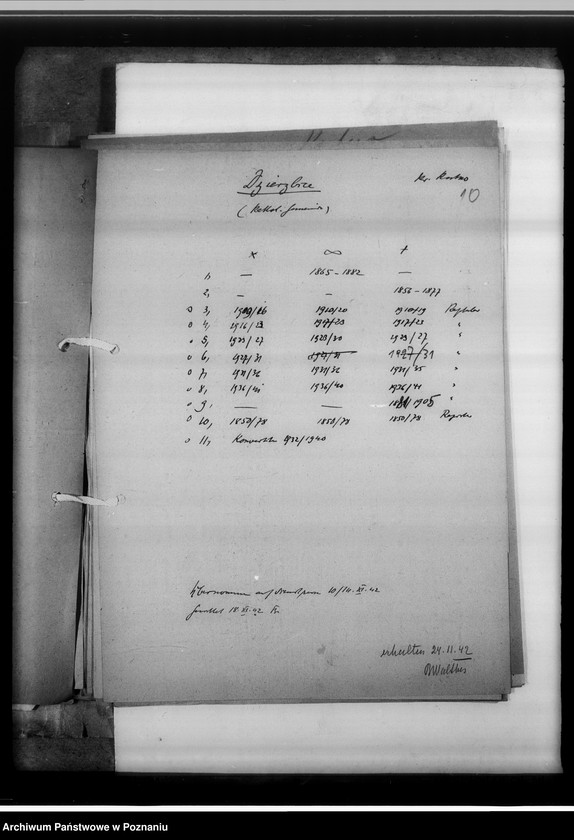 Dzierzbice
Kr. Kutno
10
(Kathol. Gemeinde)
* ∞ †
1, — 1865-1882 —
2, — — 1856-1877
3, 1909/16 1910/20 1910/19 Register
4, 1916/23 1917/23 1917/23 "
5, 1923/27 1923/30 1923/27 "
6, 1927/31 1927/31 "
7, 1931/36 1931/36 1931/35 "
8, 1936/41 1936/40 1936/41 "
9, — — 1905 "
10, 1850/78 1850/78 1850/78 Register
11, 1932/1940
Übernommen auf 10/14.XI.42
18.XI.42
erhalten 24.11.42
Walther